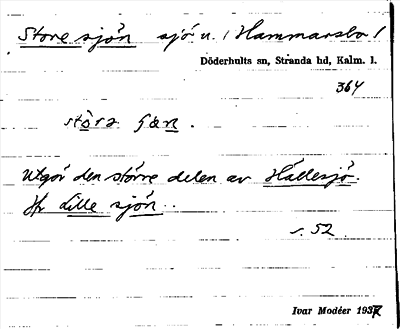 Store sjön sjö u. (Hammarsbo)
Döderhults sn, Stranda hd, Kalm. l.
364
störa
Utgör den större delen av Hällesjö.
Jfr Lille sjön.
s. 52.
Ivar Modéer 1937